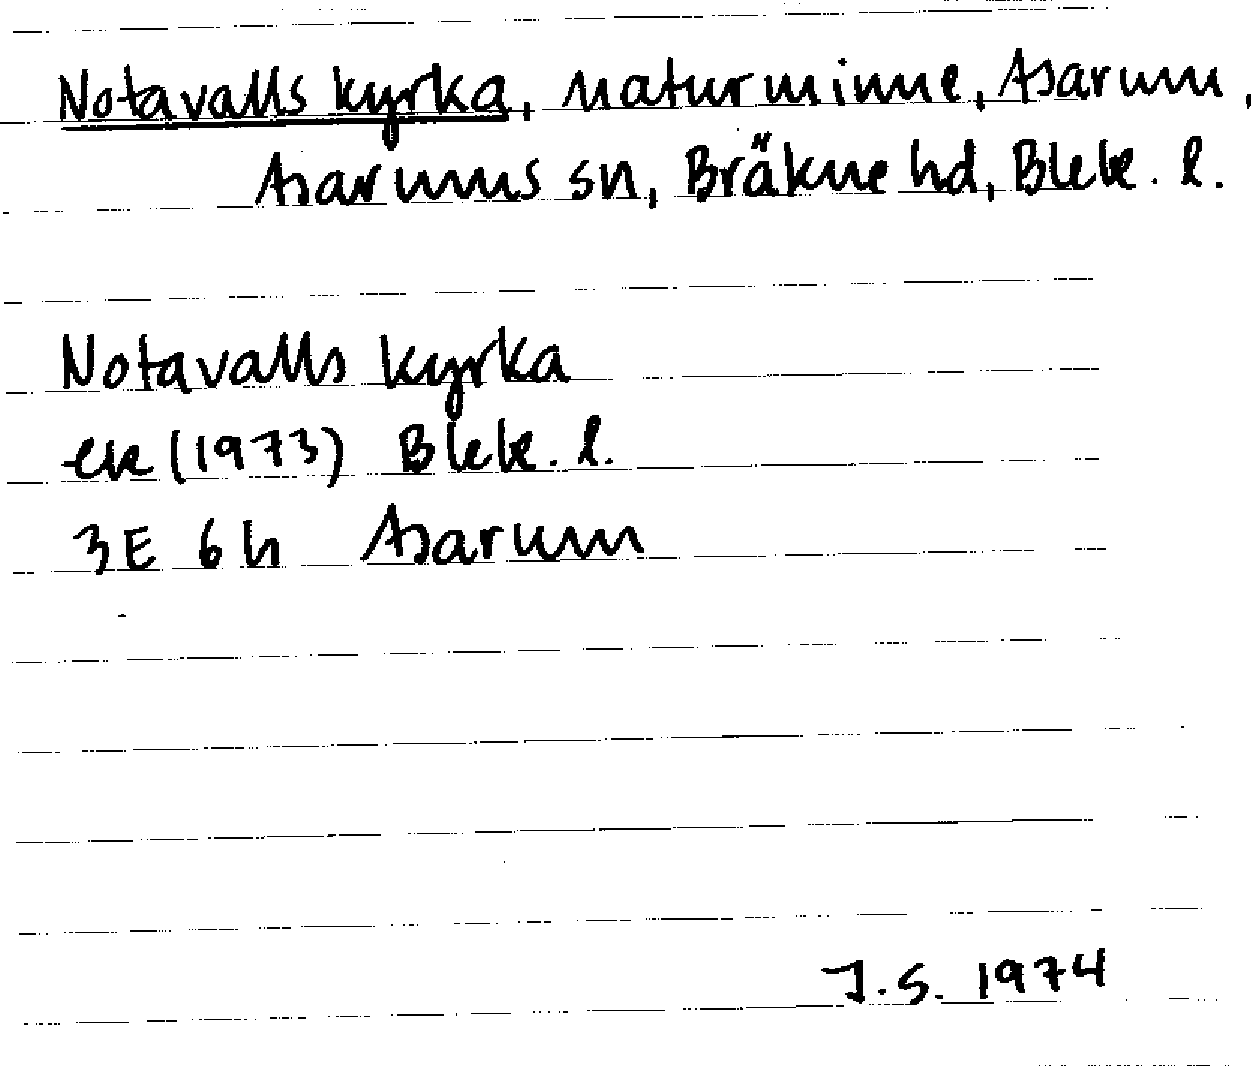 Notavalls kyrka, naturminne, Asarum,
Asarums sn, Bräkne hd, Blek. l.
Notavalls kyrka
ek (1973) Blek. l.
3E 6h Asarum
J.S. 1974